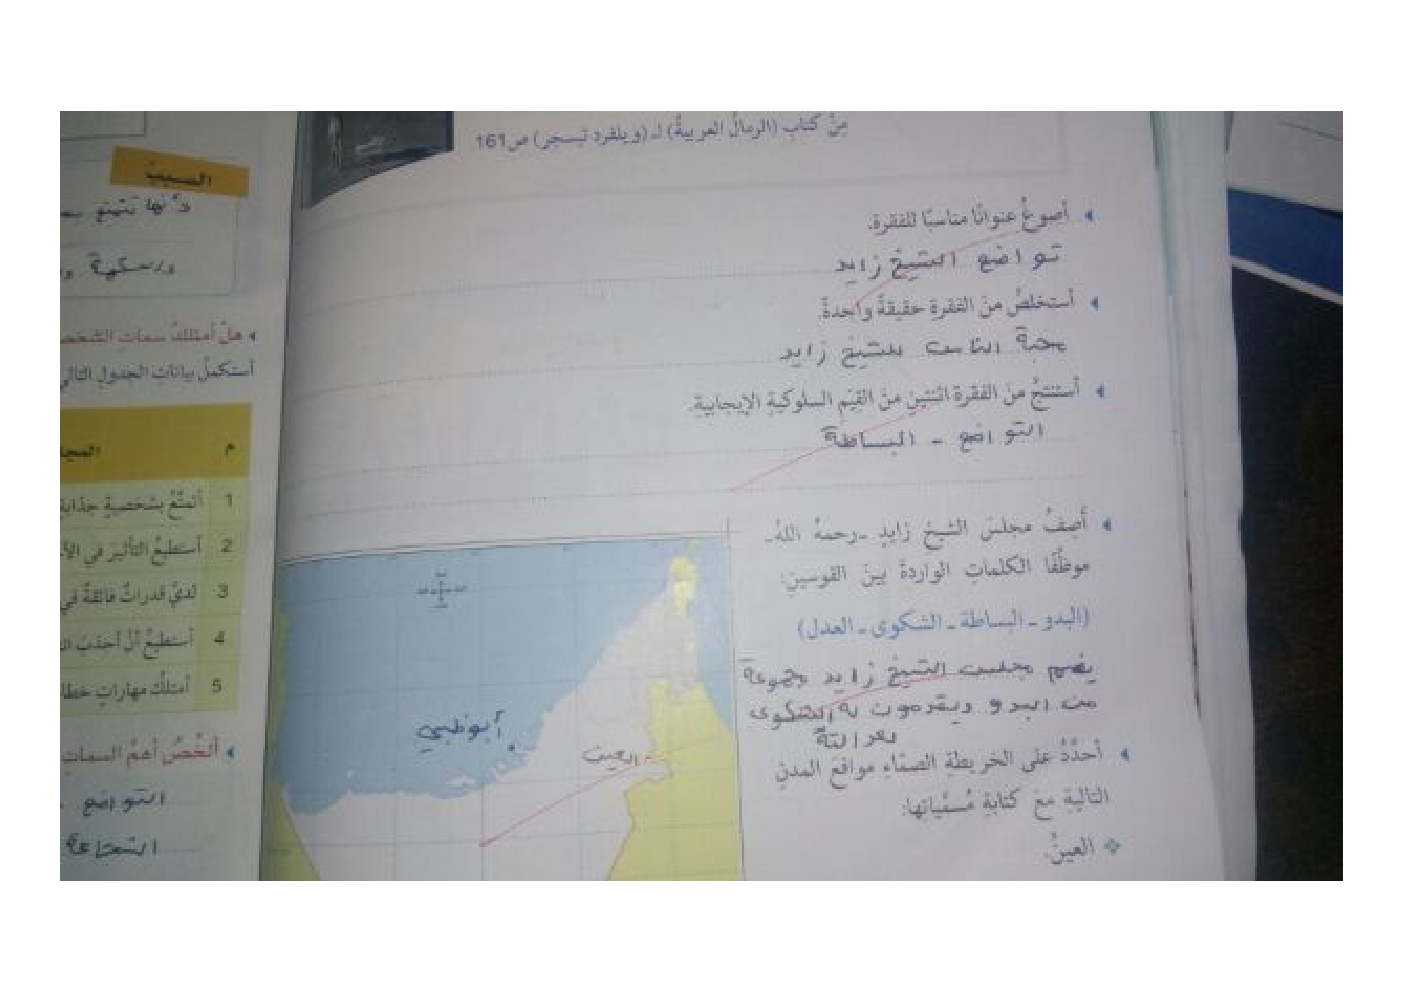 مِنْ كتابِ (الرمالُ العربيةُ) لـ (ويلفرد ثيسجر) ص161
أصوغُ عنوانًا مناسبًا للفقرة.
تواضع الشيخ زايد
أستخلصُ منَ الفقرةِ حقيقةً واحدةً.
محبة الناس للشيخ زايد
أستنتجُ منَ الفقرة اثنتينِ منَ القِيَمِ السلوكيةِ الإيجابيةِ.
التواضع - البساطة
أَصِفُ مجلسَ الشيخِ زايدٍ -رحمهُ اللهُ-
موظِّفًا الكلماتِ الواردةَ بينَ القوسينِ:
(البدو - البساطة - الشكوى - العدل)
يضم مجلس الشيخ زايد مجموعة
من البدو ويقدمون له الشكوى
أحدِّدُ على الخريطةِ الصمّاءِ مواقعَ المدنِ
التاليةِ معَ كتابةِ مُسمَّياتِها:
العينُ.
أبوظبي
العين
السبب
لأنها تتمتع
هلْ أمتلكُ سماتِ
أستكملُ بياناتِ الجدولِ
م
1 أتمتَّعُ بشخصيةٍ جذابةٍ
2 أستطيعُ التأثيرَ في
3 لديَّ قدراتٌ فائقةٌ في
4 أستطيعُ أنْ أجذبَ
5 أمتلكُ مهاراتِ
ألخِّصُ أهمَّ السماتِ
التواضع
الشجاعة